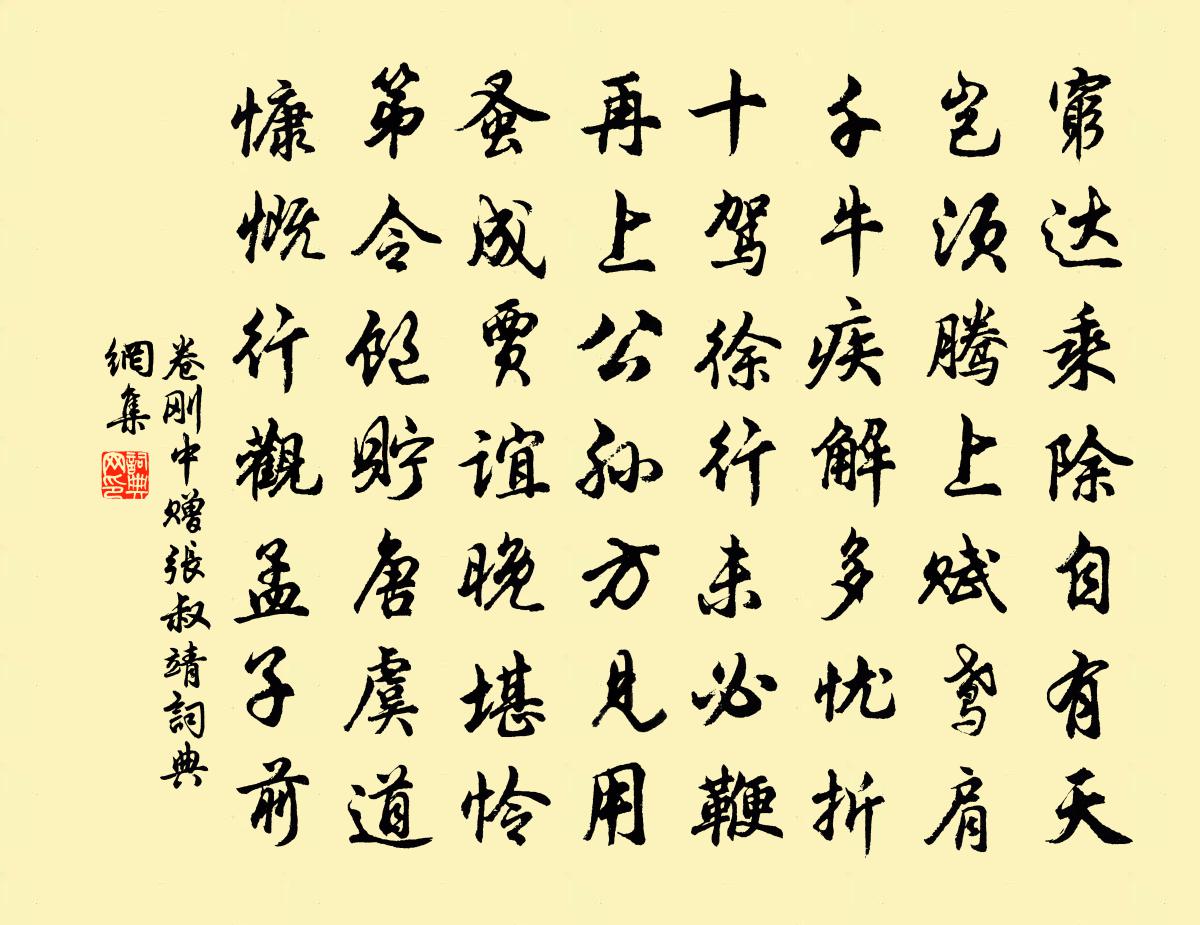 窮达乘除自有天
岂须腾上赋鸢肩
千牛疾解多忧折
十驾徐行未必鞭
再上公孙方见用
蚤成贾谊晚堪怜
第令饱贮唐虞道
慷慨行觀孟子前
卷刚中赠張叔靖詞典
網集
詞典网印